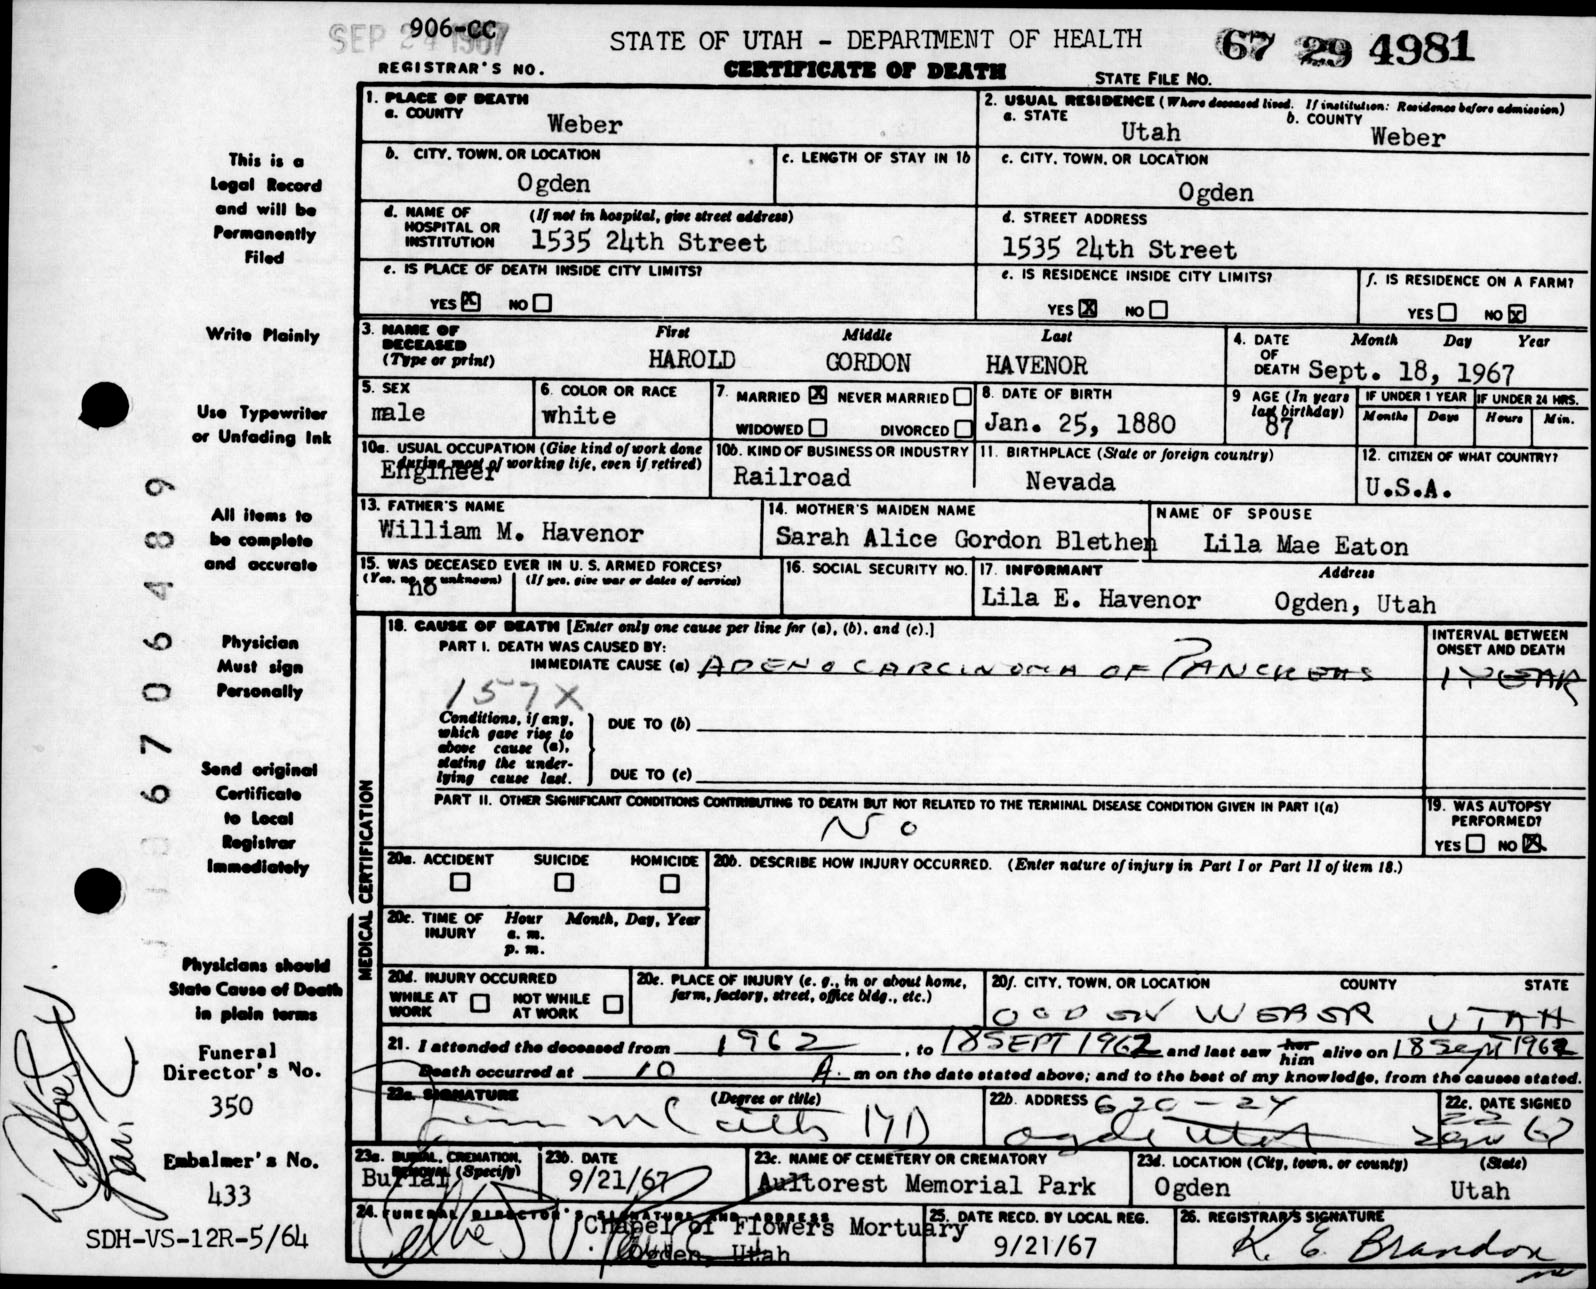 906-CC
SEP 24 1967
REGISTRAR'S NO.
STATE OF UTAH - DEPARTMENT OF HEALTH
CERTIFICATE OF DEATH
STATE FILE NO.
67 29 4981
This is a
Legal Record
and will be
Permanently
Filed
Write Plainly
Use Typewriter
or Unfading Ink
All items to
be complete
and accurate
Physician
Must sign
Personally
Send original
Certificate
to Local
Registrar
Immediately
Physicians should
State Cause of Death
in plain terms
Funeral
Director's No.
350
Embalmer's No.
433
SDH-VS-12R-5/64
67 06489
1. PLACE OF DEATH
a. COUNTY
Weber
2. USUAL RESIDENCE (Where deceased lived. If institution: Residence before admission)
a. STATE
Utah
b. COUNTY
Weber
b. CITY, TOWN, OR LOCATION
Ogden
c. LENGTH OF STAY IN 1b
c. CITY, TOWN, OR LOCATION
Ogden
d. NAME OF HOSPITAL OR INSTITUTION
(If not in hospital, give street address)
1535 24th Street
d. STREET ADDRESS
1535 24th Street
e. IS PLACE OF DEATH INSIDE CITY LIMITS?
YES X NO
e. IS RESIDENCE INSIDE CITY LIMITS?
YES X NO
f. IS RESIDENCE ON A FARM?
YES NO X
3. NAME OF DECEASED
(Type or print)
First Middle Last
HAROLD GORDON HAVENOR
4. DATE OF DEATH
Month Day Year
Sept. 18, 1967
5. SEX
male
6. COLOR OR RACE
white
7. MARRIED X NEVER MARRIED
WIDOWED DIVORCED
8. DATE OF BIRTH
Jan. 25, 1880
9 AGE (In years last birthday)
87
IF UNDER 1 YEAR
Months Days
IF UNDER 24 HRS.
Hours Min.
10a. USUAL OCCUPATION (Give kind of work done
during most of working life, even if retired)
Engineer
10b. KIND OF BUSINESS OR INDUSTRY
Railroad
11. BIRTHPLACE (State or foreign country)
Nevada
12. CITIZEN OF WHAT COUNTRY?
U.S.A.
13. FATHER'S NAME
William M. Havenor
14. MOTHER'S MAIDEN NAME
Sarah Alice Gordon Blethen
NAME OF SPOUSE
Lila Mae Eaton
15. WAS DECEASED EVER IN U. S. ARMED FORCES?
(Yes, no, or unknown) (If yes, give war or dates of service)
no
16. SOCIAL SECURITY NO.
17. INFORMANT Address
Lila E. Havenor Ogden, Utah
MEDICAL CERTIFICATION
18. CAUSE OF DEATH [Enter only one cause per line for (a), (b), and (c).]
PART I. DEATH WAS CAUSED BY:
IMMEDIATE CAUSE (a) ADENOCARCINOMA OF PANCREAS
INTERVAL BETWEEN
ONSET AND DEATH
1 YEAR
157X
Conditions, if any,
which gave rise to
above cause (a),
stating the under-
lying cause last.
DUE TO (b)
DUE TO (c)
PART II. OTHER SIGNIFICANT CONDITIONS CONTRIBUTING TO DEATH BUT NOT RELATED TO THE TERMINAL DISEASE CONDITION GIVEN IN PART I(a)
No
19. WAS AUTOPSY
PERFORMED?
YES NO X
20a. ACCIDENT SUICIDE HOMICIDE
20b. DESCRIBE HOW INJURY OCCURRED. (Enter nature of injury in Part I or Part II of item 18.)
20c. TIME OF INJURY
Hour Month, Day, Year
a. m.
p. m.
20d. INJURY OCCURRED
WHILE AT WORK NOT WHILE AT WORK
20e. PLACE OF INJURY (e. g., in or about home,
farm, factory, street, office bldg., etc.)
20f. CITY, TOWN, OR LOCATION COUNTY STATE
OGDEN WEBER UTAH
21. I attended the deceased from 1962, to 18 SEPT 1967 and last saw her him alive on 18 Sept 1967
Death occurred at 10 A. m on the date stated above; and to the best of my knowledge, from the causes stated.
22a. SIGNATURE (Degree or title)
MD
22b. ADDRESS
620-24
Ogden Utah
22c. DATE SIGNED
23a. BURIAL, CREMATION,
REMOVAL (Specify)
Burial
23b. DATE
9/21/67
23c. NAME OF CEMETERY OR CREMATORY
Aultorest Memorial Park
23d. LOCATION (City, town, or county) (State)
Ogden Utah
24. FUNERAL DIRECTOR'S SIGNATURE AND ADDRESS
Chapel of Flowers Mortuary
Ogden, Utah
25. DATE RECD. BY LOCAL REG.
9/21/67
26. REGISTRAR'S SIGNATURE
K. E. Brandon